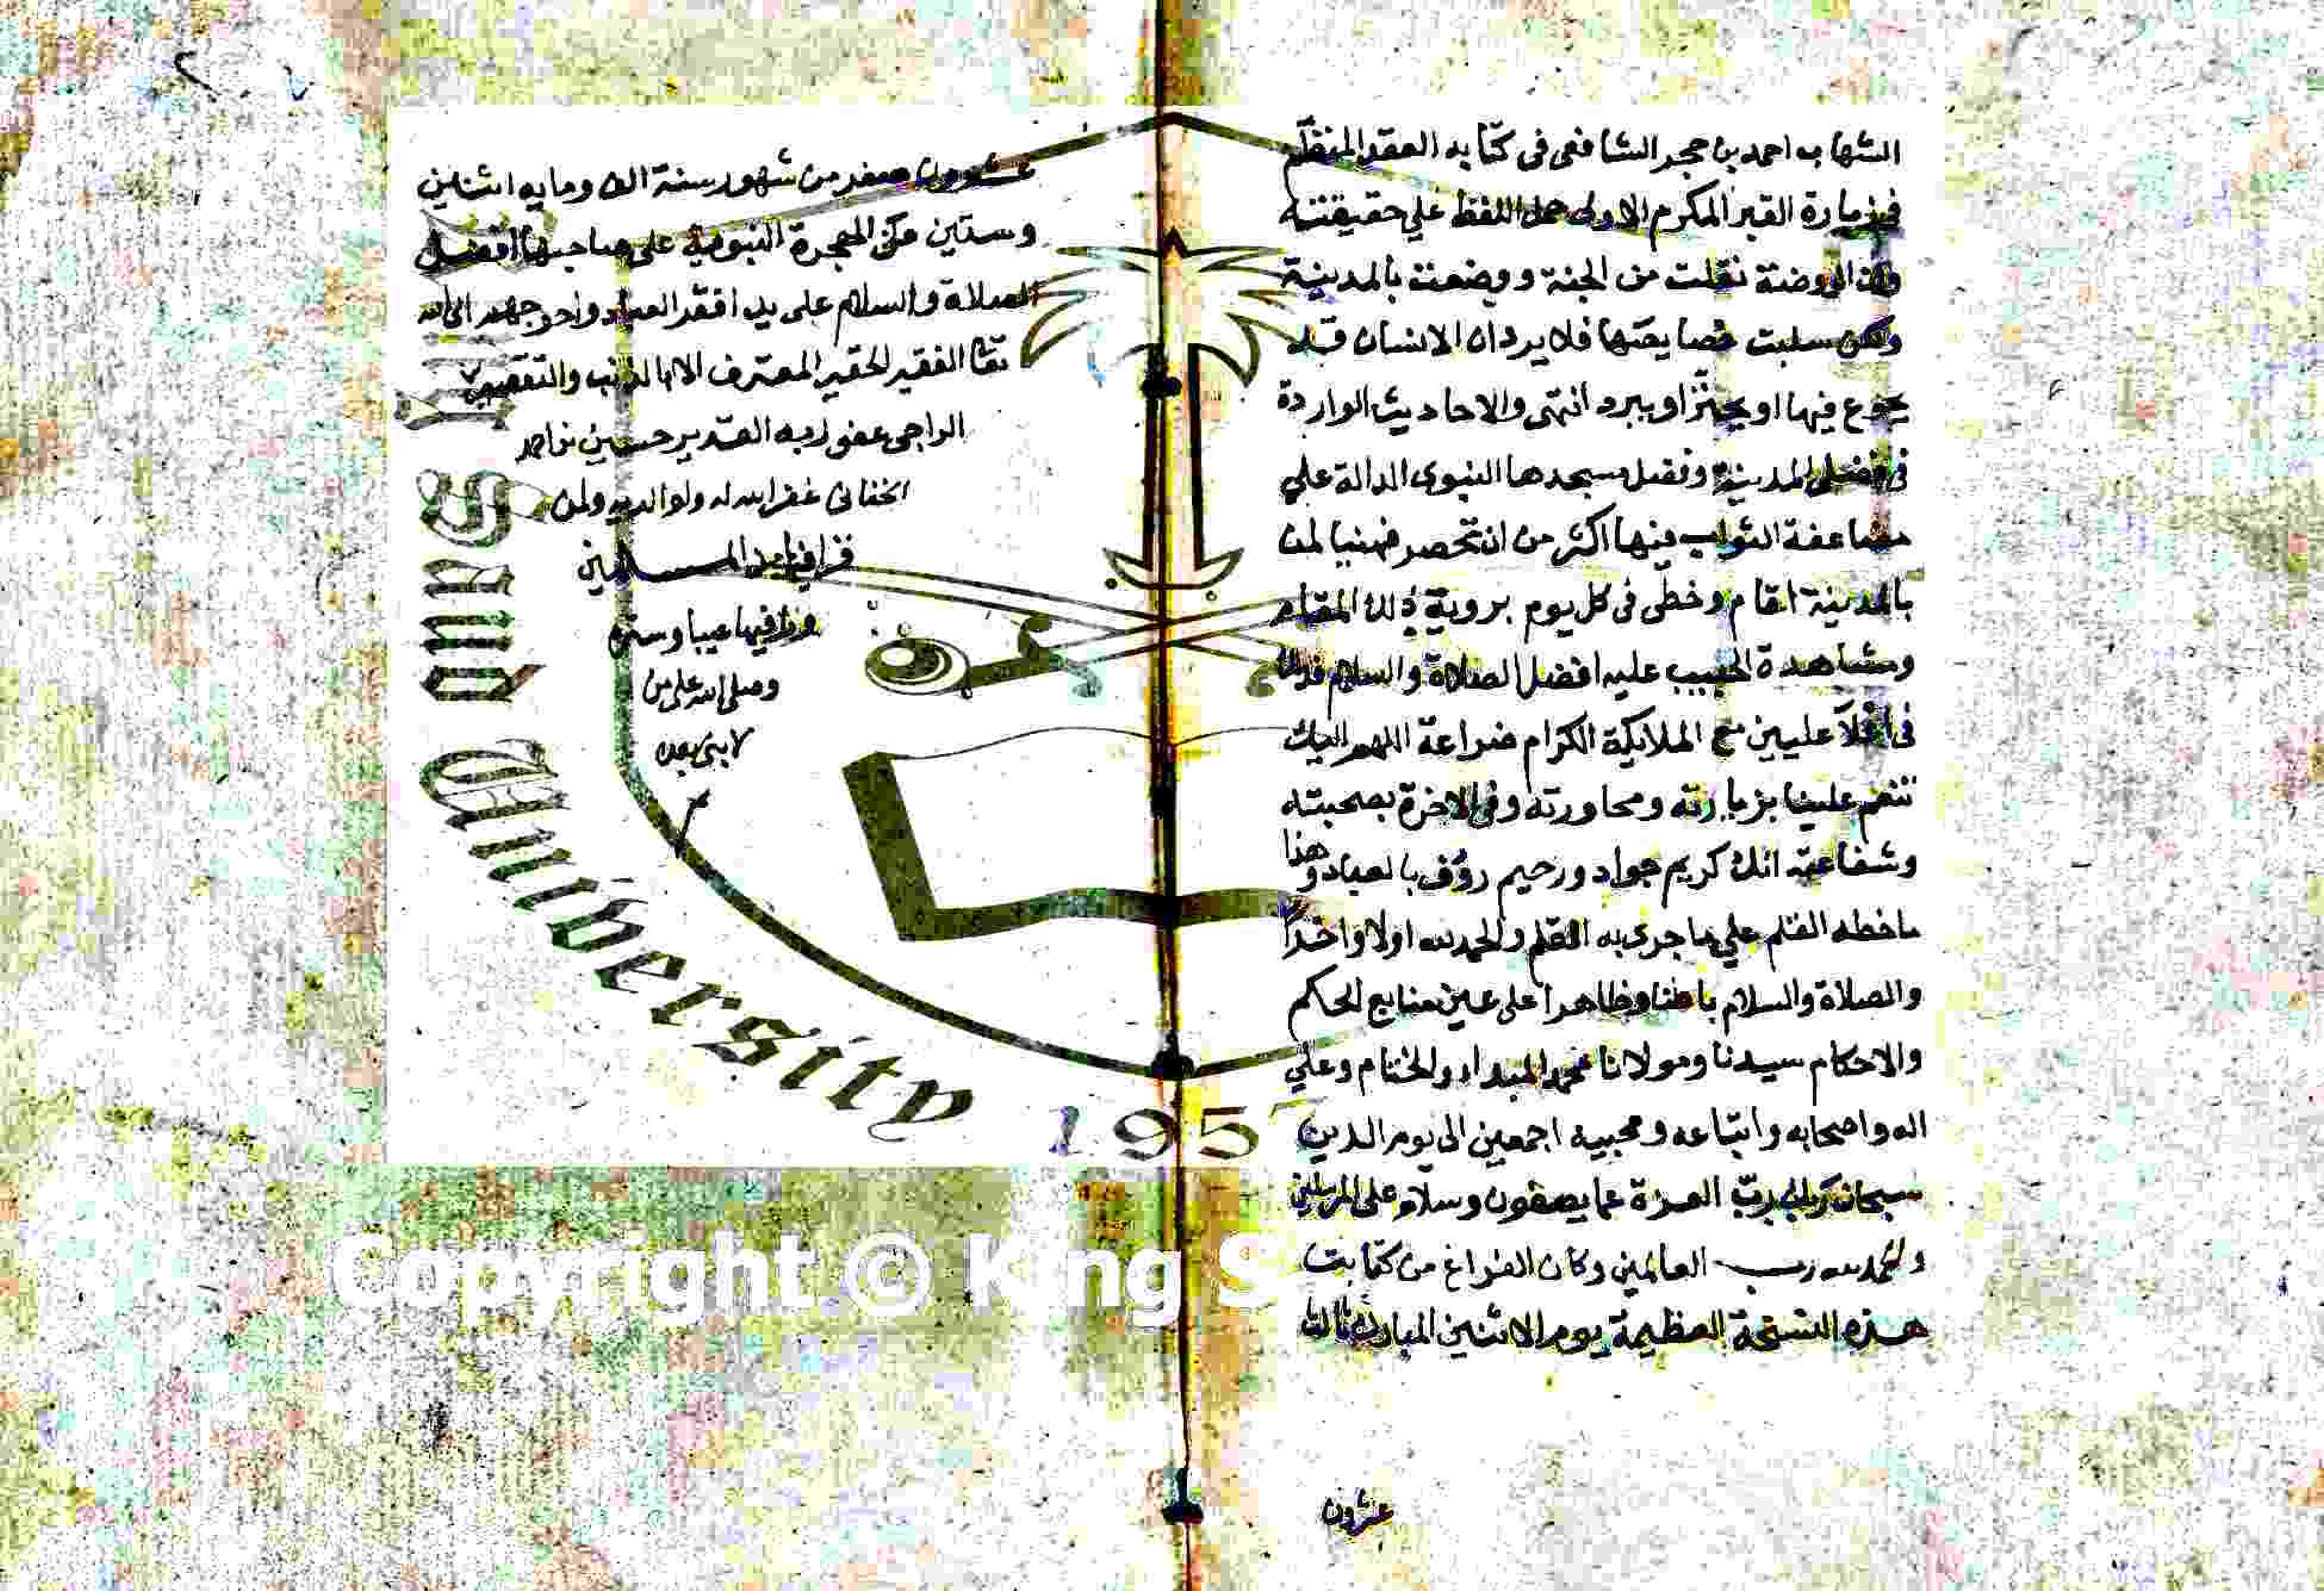 الشهاب احمد بن حجر الشافعى فى كتابه العقد المنظم
فى زيارة القبر المكرم الاولى حمل اللفظ علي حقيقته
وان الروضة نقلت من الجنة ووضعت بالمدينة
ولكن سلبت خصايصها فلا يرد ان الانسان قد
يجوع فيها او يحتر او يبرد انتهى والاحاديث الواردة
فى فضل المدينة وفضل مسجدها النبوى الدالة علي
مضاعفة الثواب فيها اكثر من ان تحصر فهنيا لمن
بالمدينة اقام وحظى فى كل يوم بروية ذلك المقام
ومشاهدة الحبيب عليه افضل الصلاة والسلام
فى اعلا عليين مع الملايكة الكرام ضراعة اللهم اليك
تنعم علينا بزيارته ومجاورته وفى الاخرة بصحبته
وشفاعته انك كريم جواد ورحيم رؤف بالعباد وهذا
ماخطه القلم علي ما جرى به القلم والحمد لله اولا واخرا
والصلاة والسلام باطنا وظاهرا على عين منابع الحكم
والاحكام سيدنا ومولانا محمد المبداء والختام وعلي
اله واصحابه واتباعه ومحبيه اجمعين الى يوم الدين
سبحان ربك رب العزة عما يصفون وسلام على المرسلين
والحمد لله رب العالمين وكان الفراغ من كتابت
هذه النسخة العظيمة يوم الاثنين المبارك ثالث
عشرون
عشرون صفر من شهور سنة الف ومايه اثنين
وستين من الهجرة النبوية على صاحبها افضل
الصلاة والسلام على يد افقر العباد واحوجهم الى الله
تعا الفقير الحقير المعترف بالذنب والتقصير
الراجى عفو ربه القدير حسين بن احمد
الخفانى غفر الله له ولوالديه ولمن
قرا فيها من المسلمين
وراى فيها عيبا وستره
وصلى الله على من
لا نبى بعده
University
195
Copyright © King S